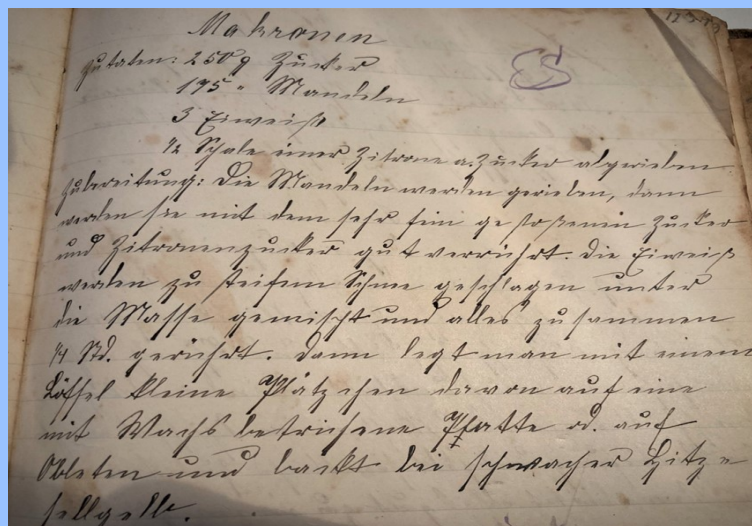 Makronen
Zutaten: 250 g Zucker
175 " Mandeln
3 Eiweiß
1/2 Schale einer Zitrone a. Zucker abgerieben
Zubereitung: Die Mandeln werden gerieben, dann
werden sie mit dem sehr fein gestoßenen Zucker
und Zitronenzucker gut verrührt. Die Eiweiß
werden zu steifem Schnee geschlagen unter
die Masse gemischt und alles zusammen
1/4 Std. gerührt. Dann legt man mit einem
Löffel kleine Plätzchen davon auf eine
mit Wachs bestrichene Platte od. auf
Obleten und backt bei schwacher Hitze
hellgelb.